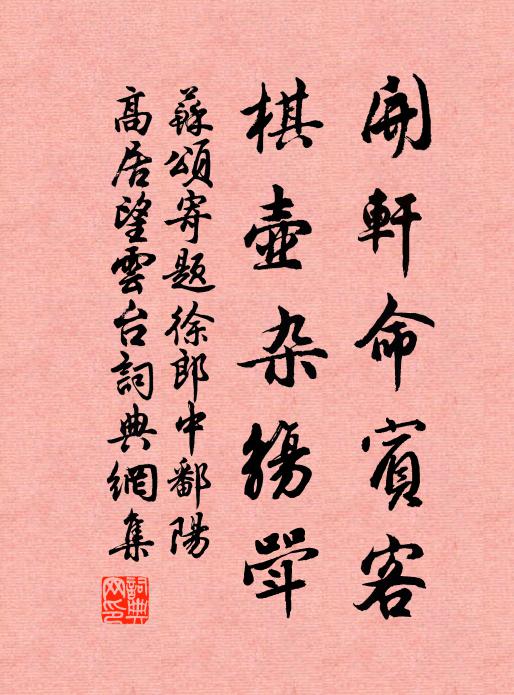 開軒命賓客
棋壺杂觴斝
蘇頌寄題徐郎中鄱陽
高居望雲台詞典網集
詞典网印